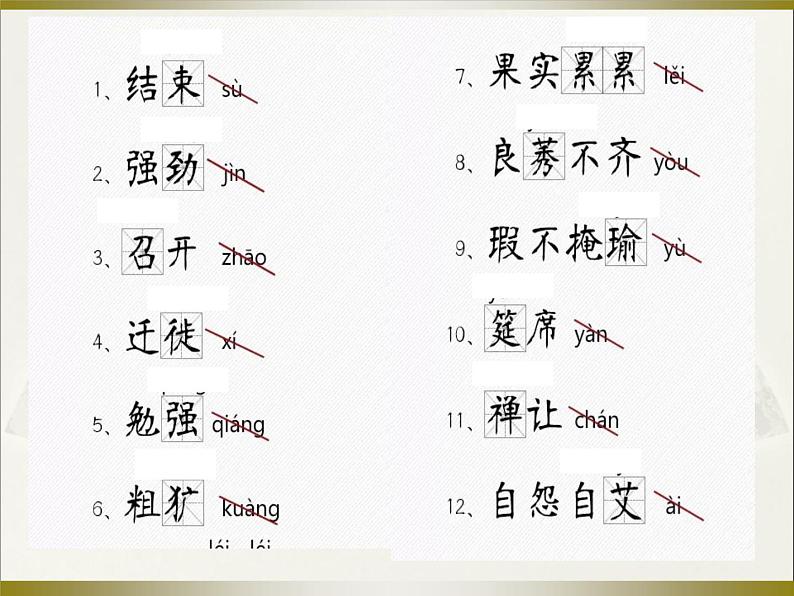 1、结束 sù
2、强劲 jìn
3、召开 zhāo
4、迁徙 xí
5、勉强 qiáng
6、粗犷 kuàng
7、果实累累 lěi
8、良莠不齐 yòu
9、瑕不掩瑜 yù
10、筵席 yàn
11、禅让 chán
12、自怨自艾 ài